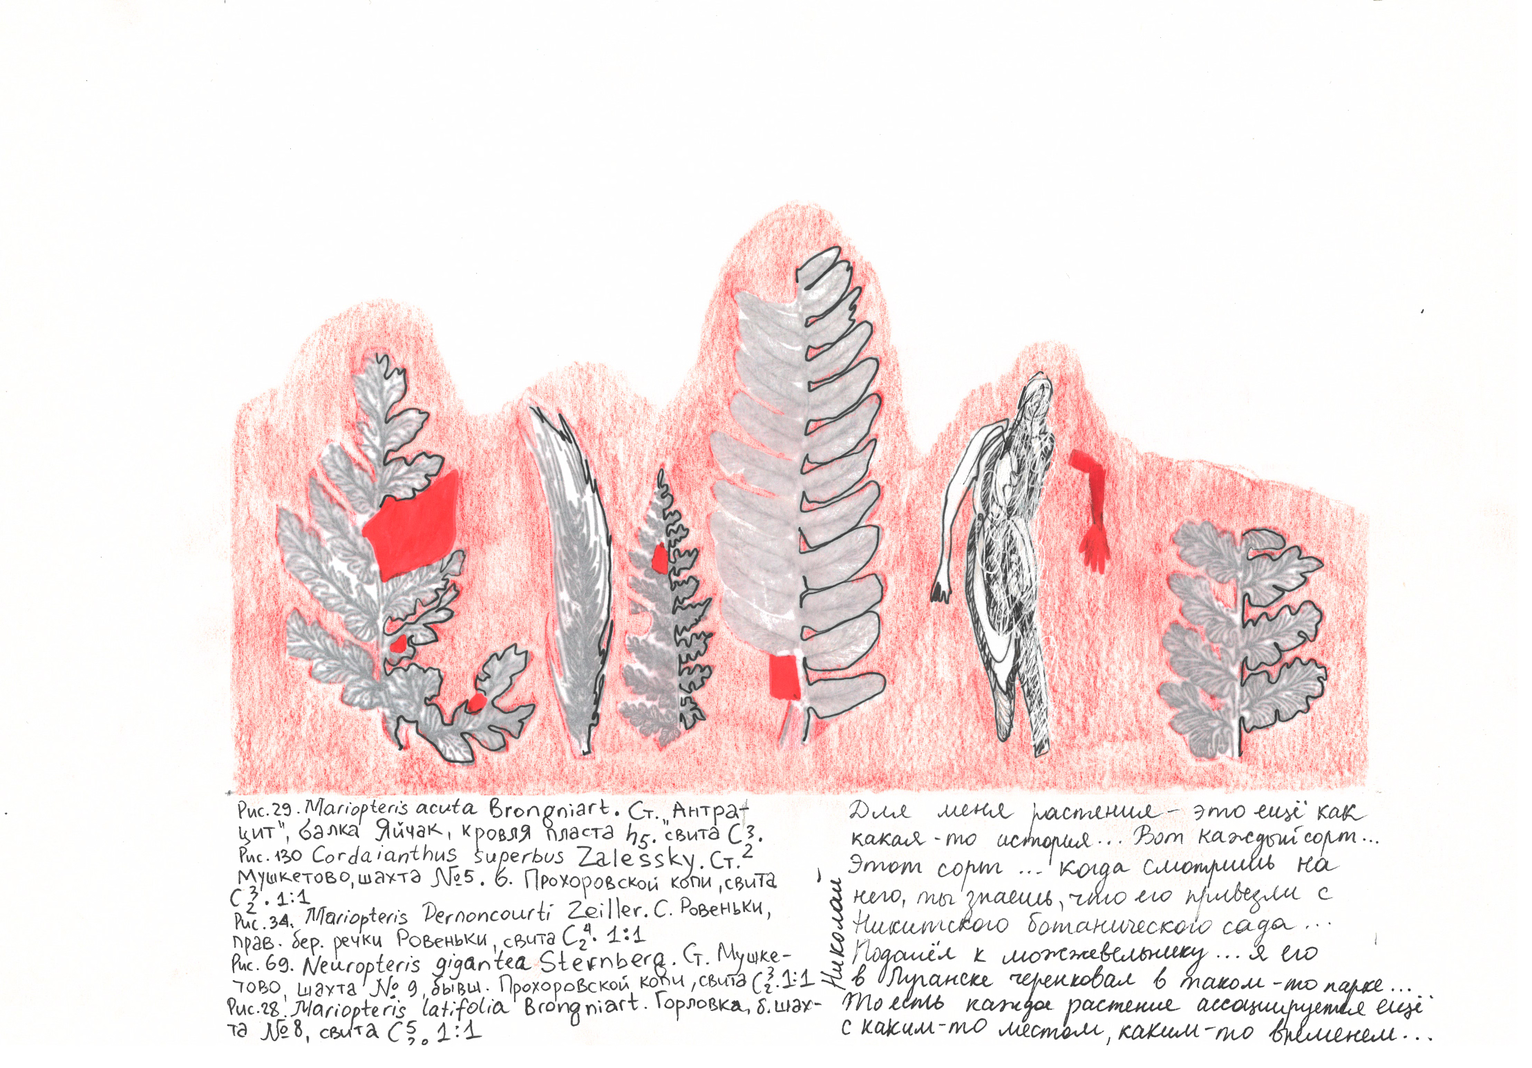 Рис.29. Mariopteris acuta Brongniart. Ст. „Антра-
цит", балка Яйчак, кровля пласта h5. свита C 3/2.
Рис. 130 Cordaianthus superbus Zalessky. Ст.
Мушкетово, шахта №5. б. Прохоровской копи, свита
C 3/2. 1:1
Рис.34. Mariopteris Dernoncourti Zeiller. С. Ровеньки,
прав. бер. речки Ровеньки, свита C 4/2. 1:1
Рис. 69. Neuropteris gigantea Sternberg. Ст. Мушке-
тово, шахта №9, бывш. Прохоровской копи, свита C 3/2. 1:1
Рис.28. Mariopteris latifolia Brongniart. Горловка, б. шах-
та №8, свита C 5/2. 1:1
Николай
Для меня растения - это ещё как
какая-то история... Вот каждый сорт...
Этот сорт ... когда смотришь на
него, ты знаешь, что его привезли с
Никитского ботанического сада...
Подошёл к можжевельнику... я его
в Луганске черенковал в таком-то парке...
То есть каждое растение ассоциируется ещё
с каким-то местом, каким-то временем...